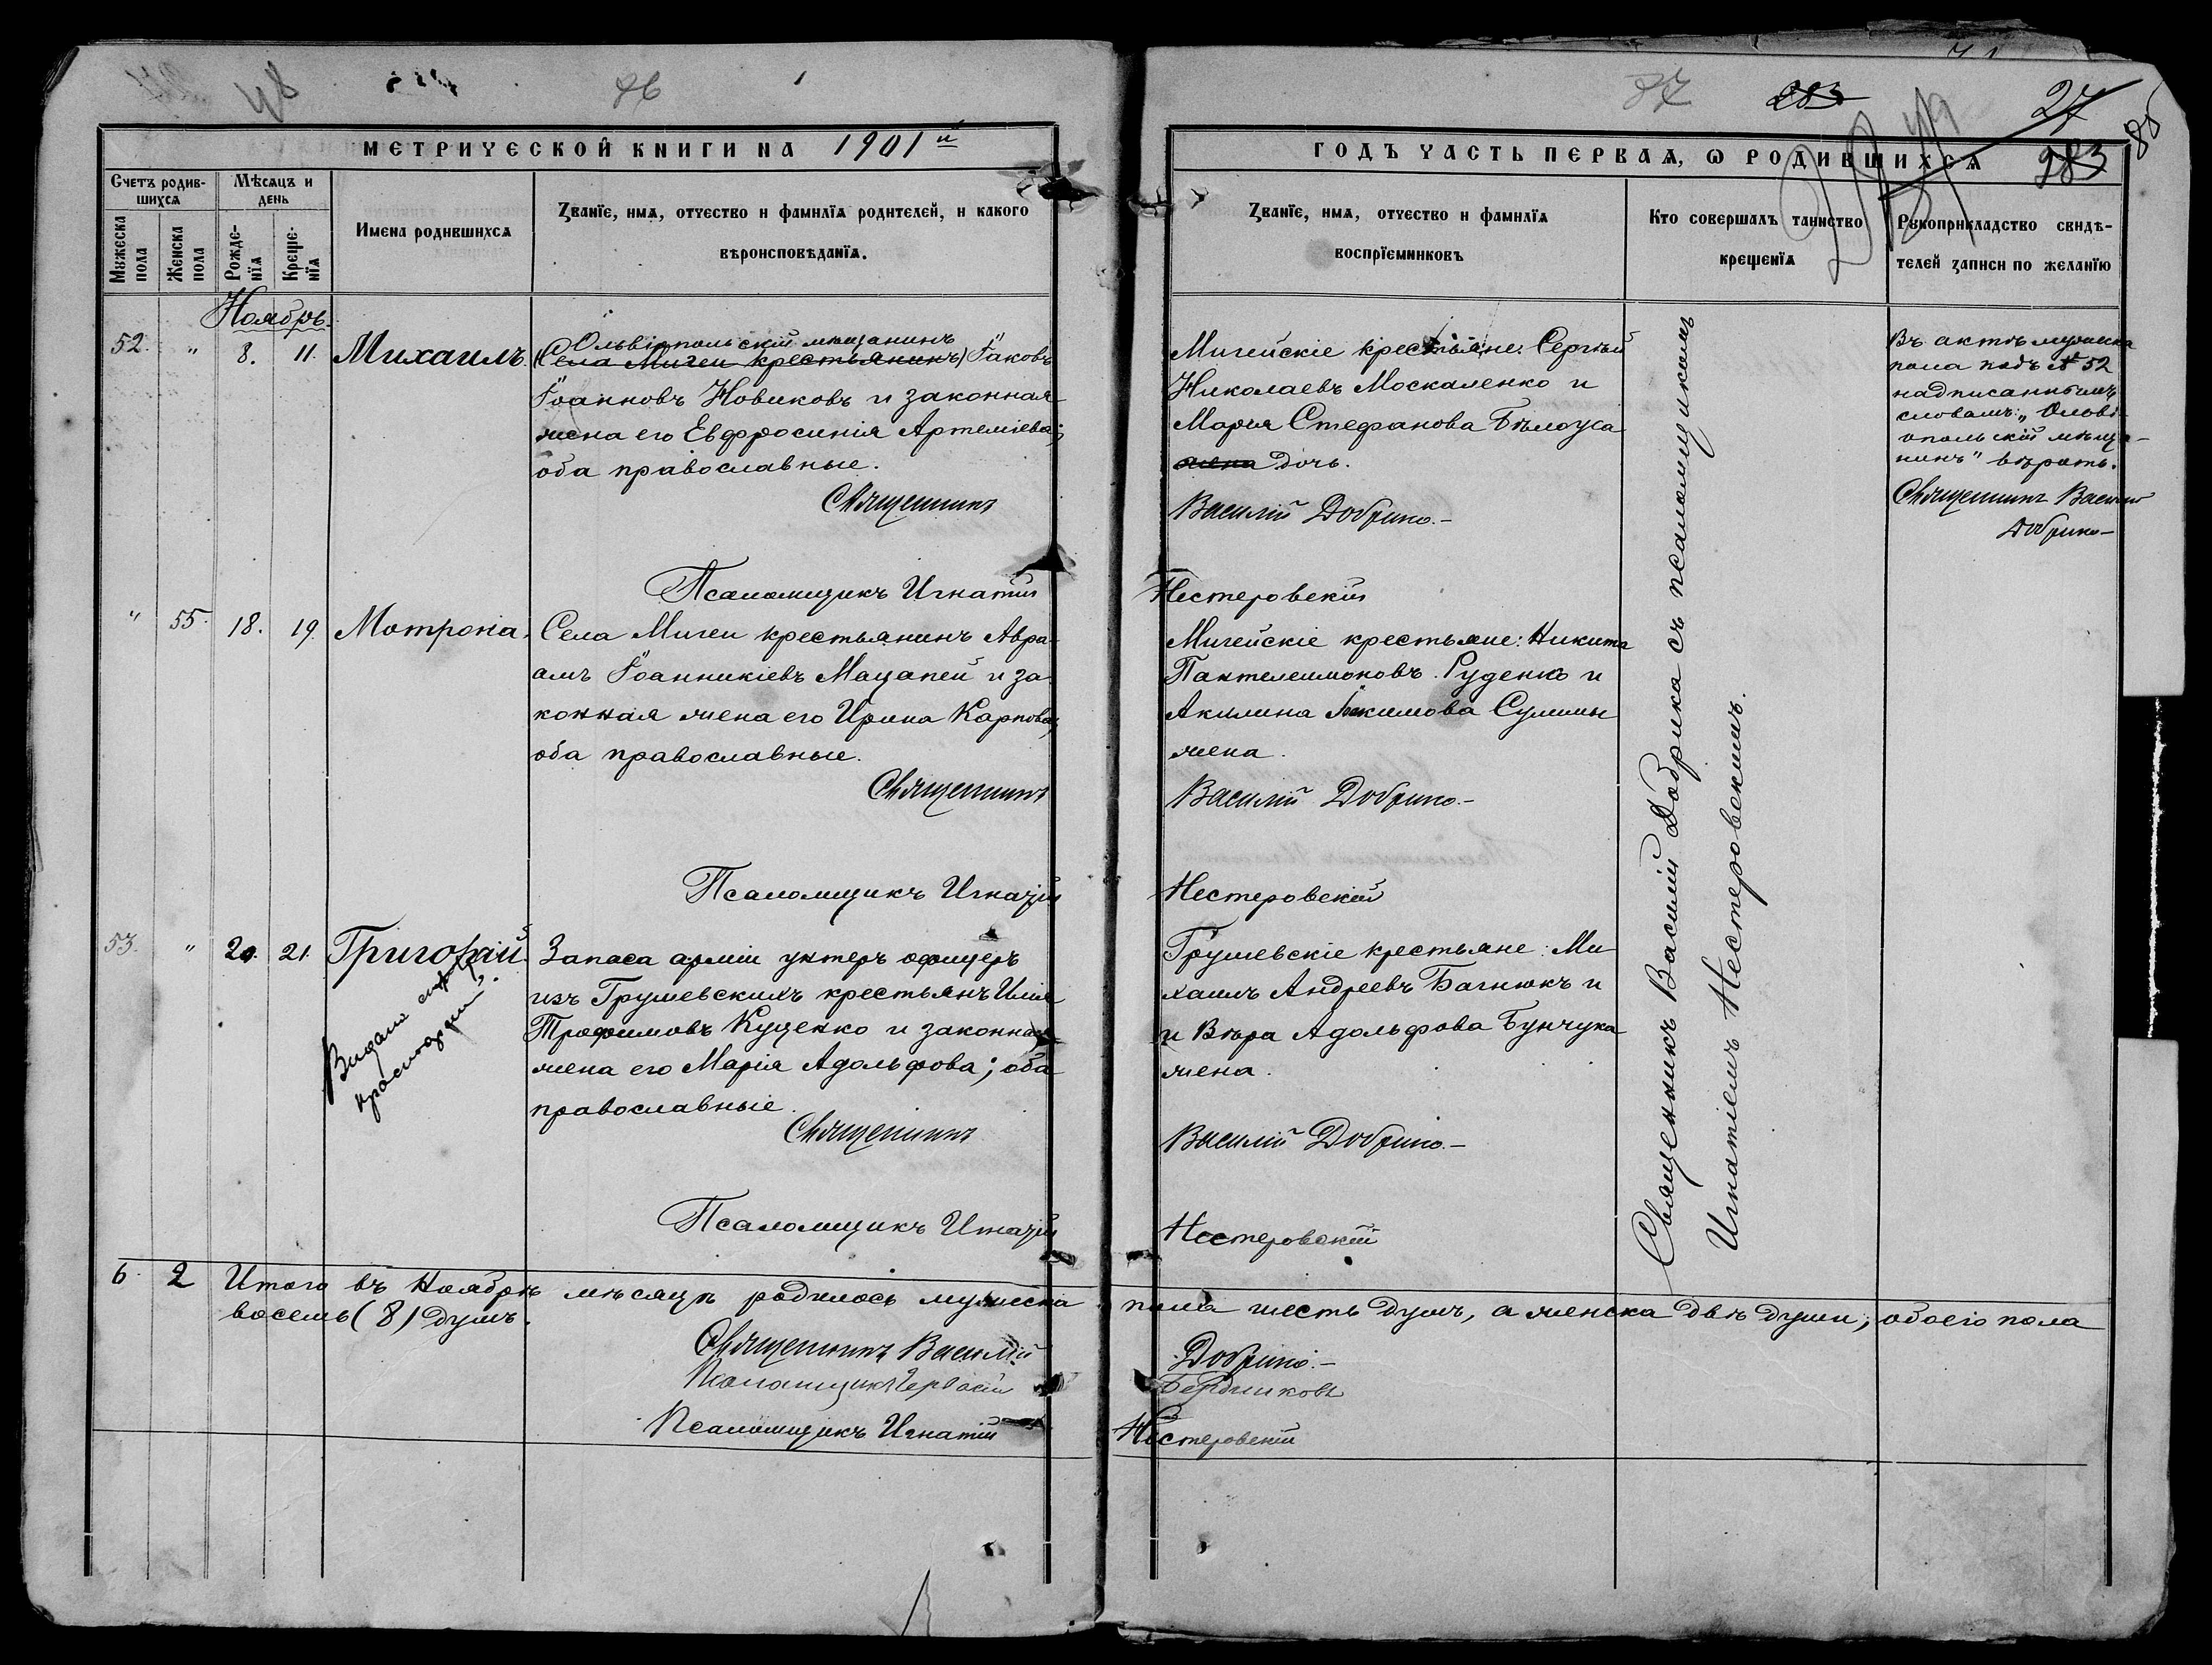 48
86
87
283
27
МЕТРИЧЕСКОЙ КНИГИ НА 1901й
ГОДЪ ЧАСТЬ ПЕРВАЯ, Ѡ РОДИВШИХСЯ
283
86
Счетъ родившихся
Мужеска пола
Женска пола
Мѣсяцъ и день
Рожденїя
Крещенїя
Имена родившихся
Званїе, имя, отчество и фамилїя родителей, и какого
вѣроисповѣданїя.
Званїе, имя, отчество и фамилїя
воспрїемниковъ
Кто совершалъ таинство
крещенїя
Рукоприкладство свидѣ-
телей записи по желанїю
Ноябрь.
52. " 8. 11. Михаилъ.
Ольвіопольскій мѣщанинъ
(Села Мигеи крестьянинъ) Іаковъ
Іоанновъ Новиковъ и законная
жена его Евфросинія Артеміева;
оба православные.
Священникъ
Псаломщикъ Игнатій
Мигейскіе крестьяне: Сергѣй
Николаевъ Москаленко и
Марѳа Стефанова Бѣлоуса
жена дочь.
Василій Добрико.-
Нестеровскій
Въ актѣ мужеска
пола подъ № 52
надписаннымъ
словамъ: „Ольві-
опольскій мѣща-
нинъ" вѣрить.
Священникъ Василій
Добрико-
" 55. 18. 19. Мотрона.
Села Мигеи крестьянинъ Авра-
амъ Іоанникіевъ Мацапей и за-
конная жена его Ирина Карпова;
оба православные.
Священникъ
Псаломщикъ Игнатій
Мигейскіе крестьяне: Никита
Пантелеимоновъ Руденко и
Акилина Іакимова Сулимы
жена.
Василій Добрико.-
Нестеровскій
53. " 20. 21. Григорій.
Запаса арміи унтеръ офицеръ
изъ Грушевскихъ крестьянъ Илія
Трофимовъ Куценко и законная
жена его Марія Адольфова; оба
православные.
Священникъ
Псаломщикъ Игнатій
Грушевскіе крестьяне: Ми-
хаилъ Андреевъ Багнюкъ и
и Вѣра Адольфова Бунчука
жена.
Василій Добрико.-
Нестеровскій
Священникъ Василій Добрико съ псаломщикомъ
Игнатіемъ Нестеровскимъ.
6. 2 Итого въ Ноябрѣ мѣсяцѣ родилось мужеска пола шесть душъ, а женска двѣ души; обоего пола
восемь (8) душъ.
Священникъ Василій Добрико.-
Псаломщикъ Бердниковъ
Псаломщикъ Игнатій Нестеровскій